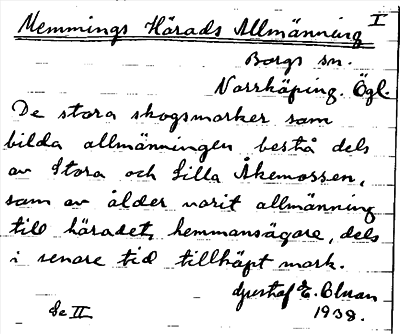 Memmings Härads Allmänning I
Borgs sn.
Norrköping. Ögl.
De stora skogsmarker som
bilda allmänningen bestå dels
av Stora och Lilla Åkemossen,
som av ålder varit allmänning
till häradets hemmansägare, dels
i senare tid tillköpt mark.
Gustaf E.
Se II 1938.